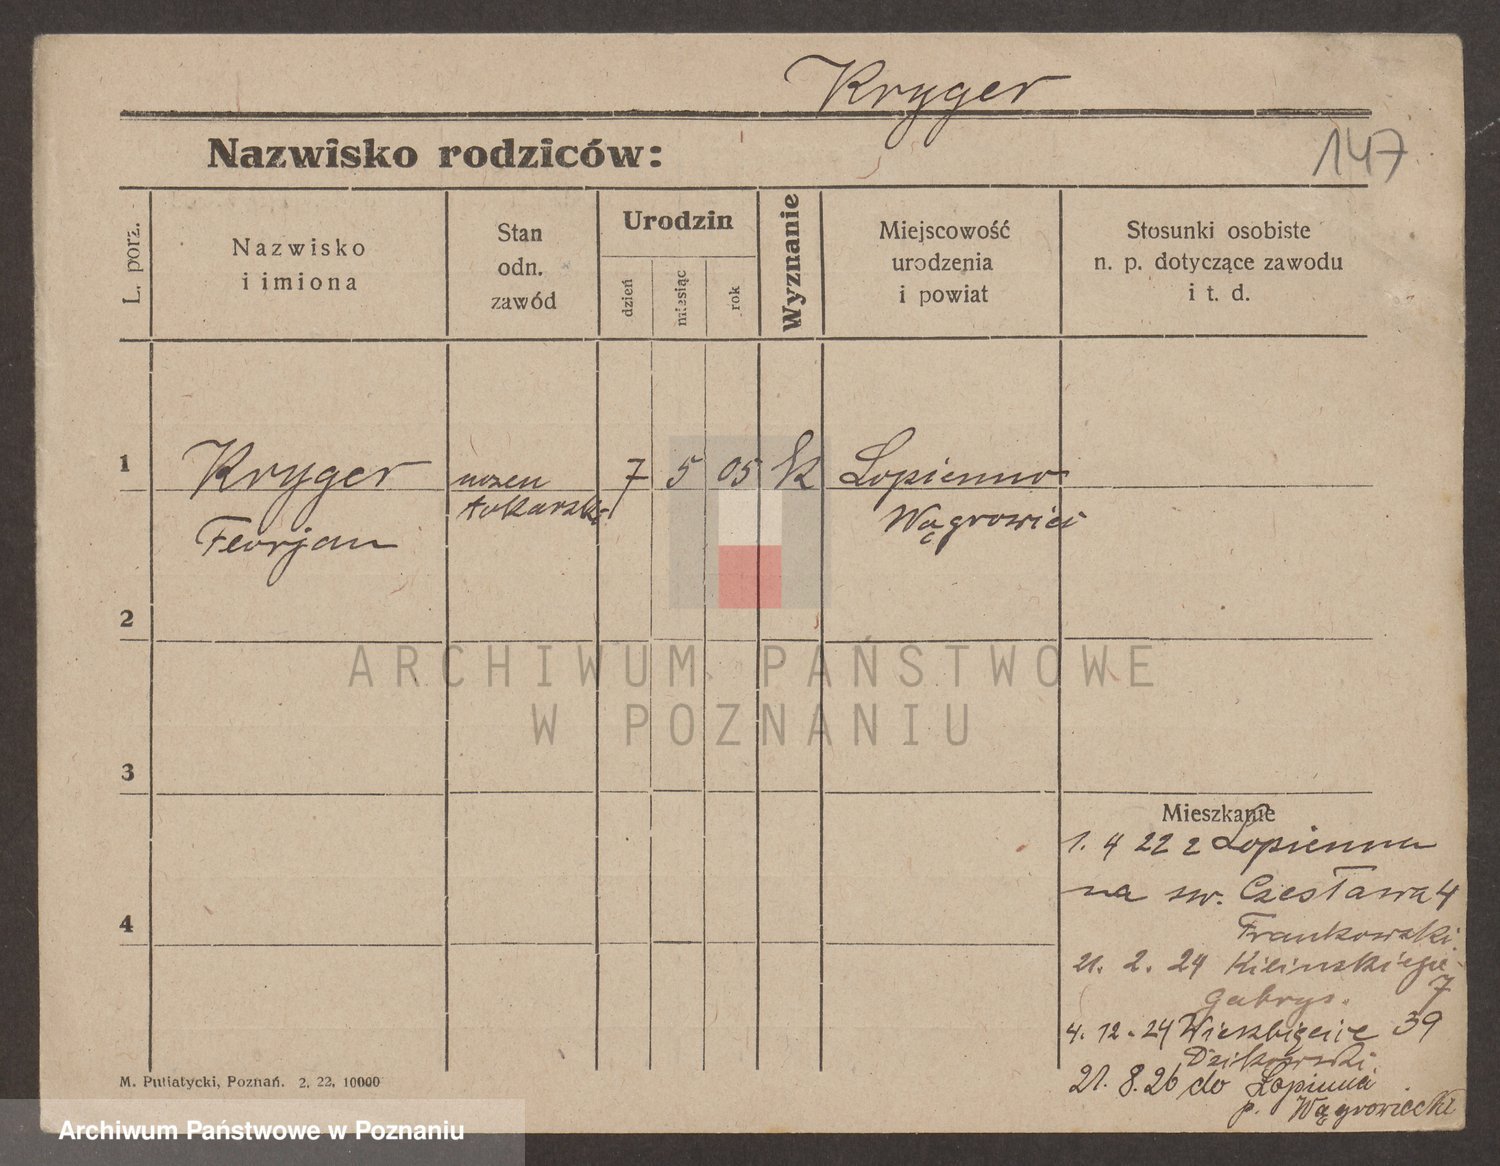 Kryger
147
Nazwisko rodziców:
L. porz.
Nazwisko
i imiona
Stan
odn.
zawód
Urodzin
dzień
miesiąc
rok
Wyznanie
Miejscowość
urodzenia
i powiat
Stosunki osobiste
n. p. dotyczące zawodu
i t. d.
1
Kryger
Florjan
uczeń
tokarski
7
5
05
k
Łopienno
Wągrowiec
2
ARCHIWUM PAŃSTWOWE
W POZNANIU
3
4
Mieszkanie
1. 4 22 z Łopienna
na św. Czesława 4
Frankowski
21. 2. 24 Kilińskiego
7
Gabrys.
4. 12. 24 Wierzbięcice 39
Dzikowski
21. 8. 26 do Łopienna
p. Wągrowiecki
M. Putiatycki, Poznań. 2. 22. 10000
Archiwum Państwowe w Poznaniu